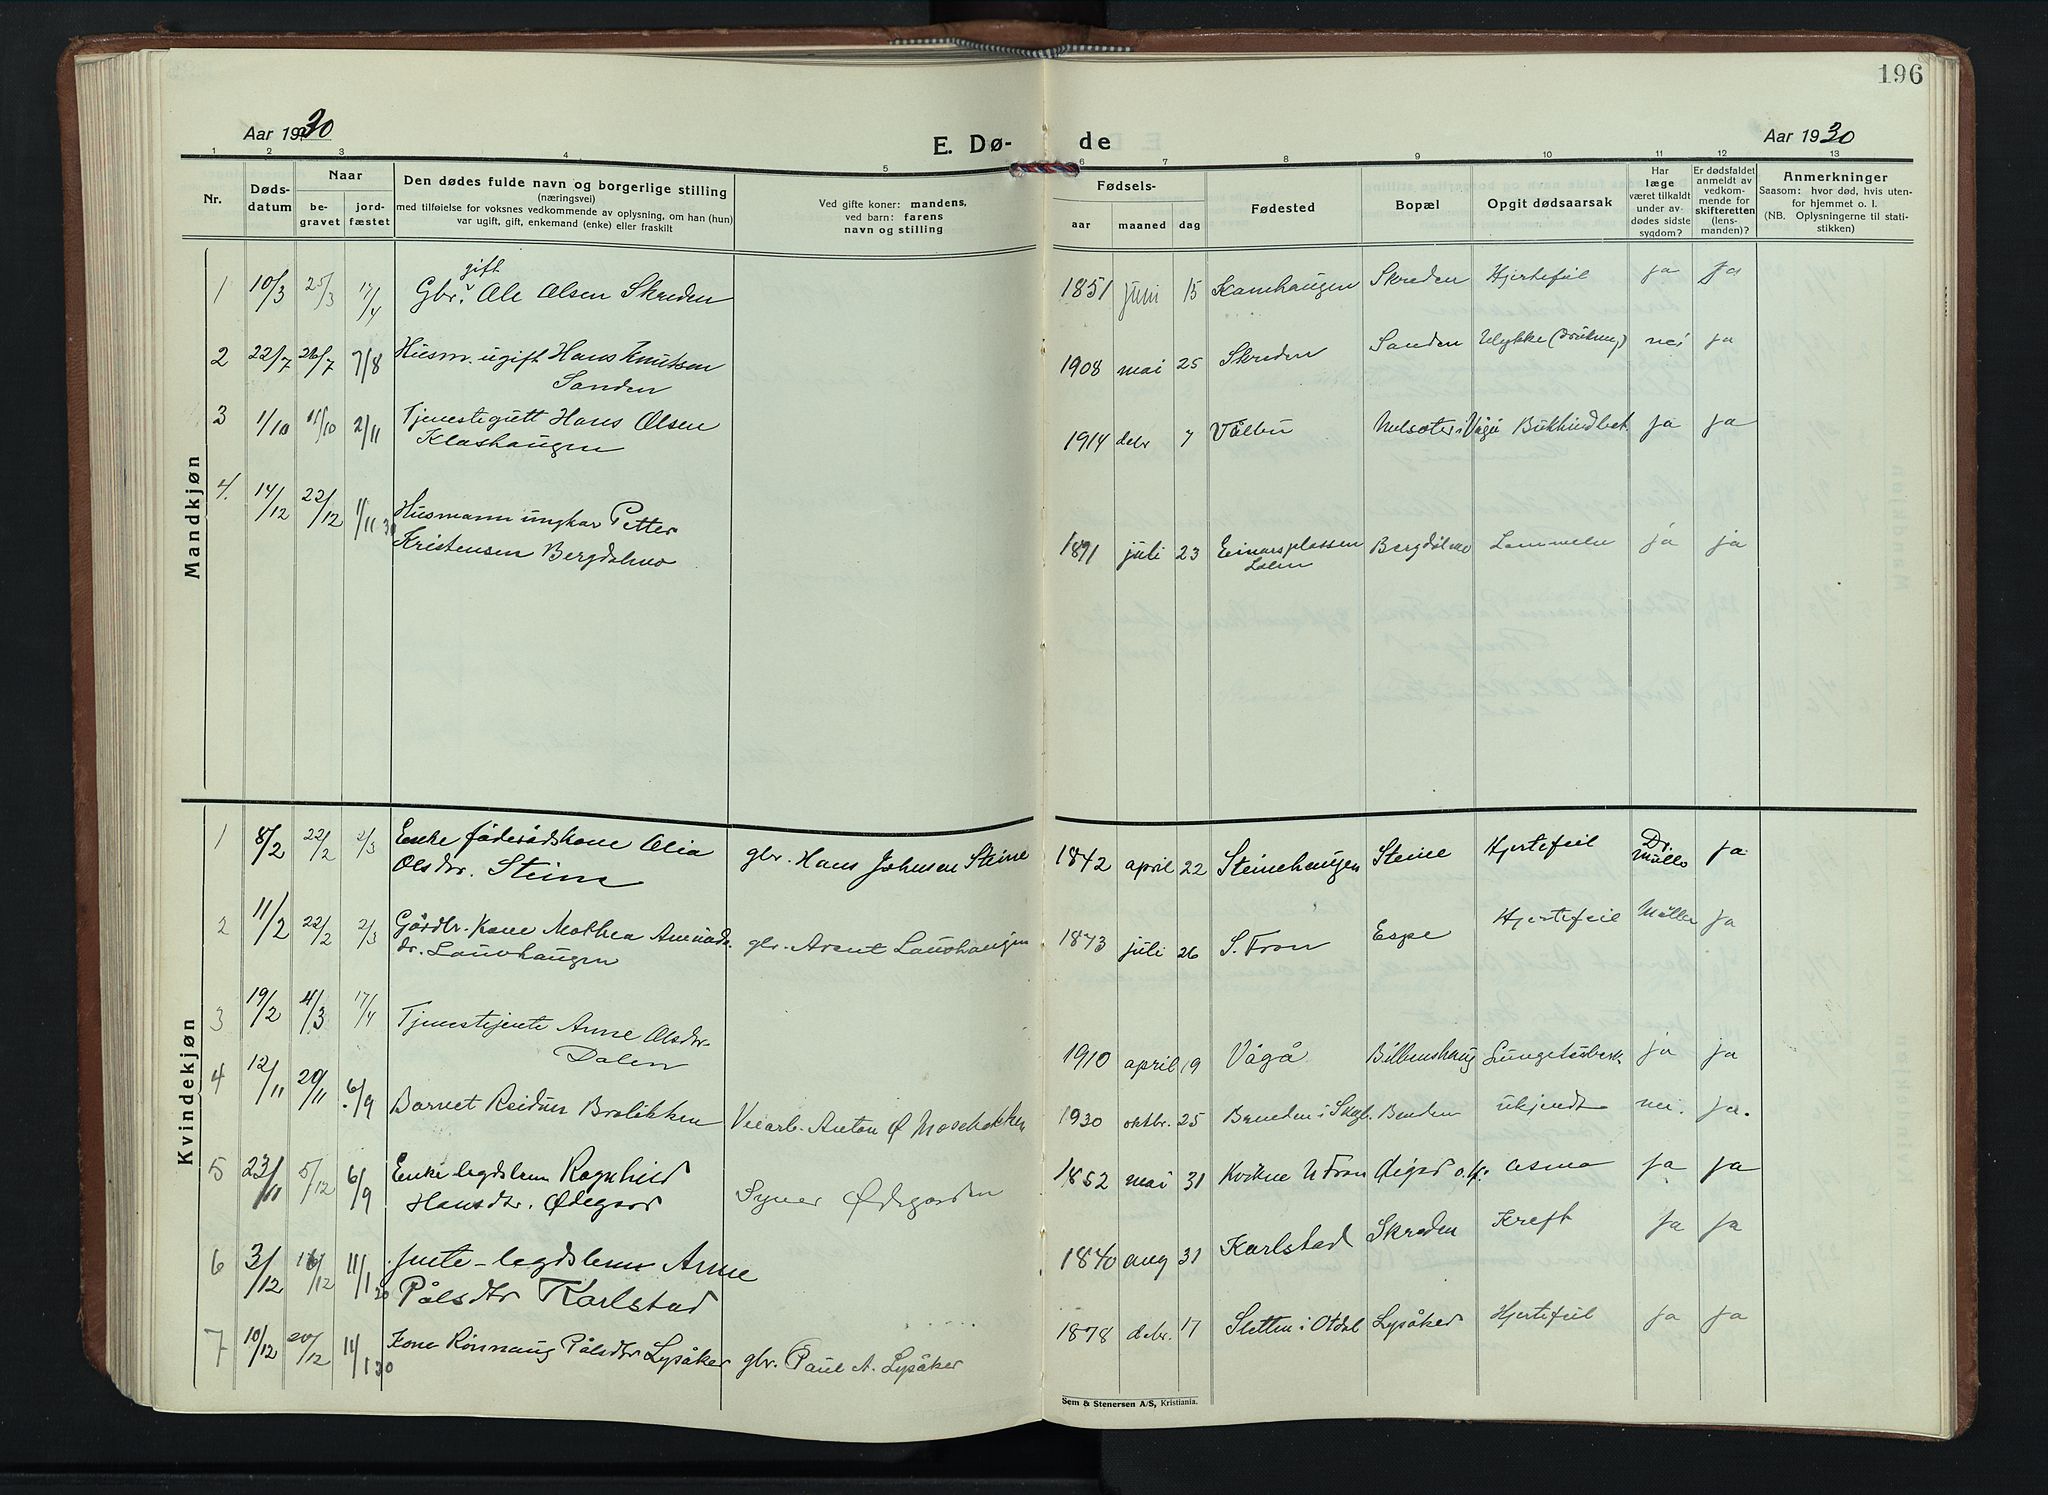 196
Aar 1930
E. Dø-
de
Aar 1930
1 2 3 4 5 6 7 8 9 10 11 12 13
Nr.
Døds-
datum
Naar
be-
gravet
jord-
fæstet
Den dødes fulde navn og borgerlige stilling
(næringsvei)
med tilføielse for voksnes vedkommende av oplysning, om han (hun)
var ugift, gift, enkemand (enke) eller fraskilt
Ved gifte koner: mandens,
ved barn: farens
navn og stilling
Fødsels-
aar maaned dag
Fødested
Bopæl
Opgit dødsaarsak
Har
læge
været tilkaldt
under av-
dødes sidste
sygdom?
Er dødsfaldet
anmeldt av
vedkom-
mende for
skifteretten
(lens-
manden)?
Anmerkninger
Saasom: hvor død, hvis uten-
for hjemmet o. l.
(NB. Oplysningerne til stati-
stikken)
Mandkjøn
gift
1 10/3 25/3 17/4 Gbr. Ole Olsen Skreden 1851 juni 15 Kamhaugen Skreden Hjertefeil ja ja
2 22/7 26/7 7/8 Husm. ugift Hans Knutsen
Sanden 1908 mai 25 Skreden Sanden Ulykke (drukning) nei ja
3 1/10 11/10 2/11 Tjenestegutt Hans Olsen
Klashaugen 1914 debr 7 Vålbu i Vågå Bukhindbet. ja ja
4. 14/12 22/12 1/11 30 Husmann ungkar Petter
Kristensen Bergdalmo 1891 juli 23 Einarsplassen
Dalen Bergdalmo ja ja
Kvindekjøn
1 8/2 22/2 2/3 Enke föderådskone Olia
Olsdtr. Steine gbr. Hans Johnsen Steine 1842 april 22 Steinehaugen Steine Hjertefeil Dr.
Müller ja
2 11/2 22/2 2/3 Gårdbr. Kone Mathea Amunds-
dr. Lauvhaugen gbr. Arent Lauvhaugen 1873 juli 26 S. Fron Espe Hjertefeil Müller ja
3 19/2 4/3 17/4 Tjenestejente Anne Olsdtr.
Dalen 1910 april 19 Vågå Lungetuberk. ja ja
4 12/11 20/11 6/9 Barnet Reidun Bralikken Veiarb. Anton Ø Mosehokken 1930 oktbr. 25 ukjendt nei. ja.
5 23/11 5/12 6/9 Enke legdslem Ragnhild
Hansdtr. Ødegaard Syver Ødegarden 1852 mai 31 Kvikne N Fron asma ja ja
6 3/12 16/12 11/1 30 Jente - legdslem Anne
Pålsdtr Karlstad 1840 aug 31 Karlstad Skreden Kreft ja ja
7 10/12 20/12 11/1 30 Kone Rönnaug Pålsdtr Lysåker gbr. Paul A. Lysåker 1878 debr. 17 Sletten i Otdal Lysåker Hjertefeil ja ja
Sem & Stenersen A/S, Kristiania.